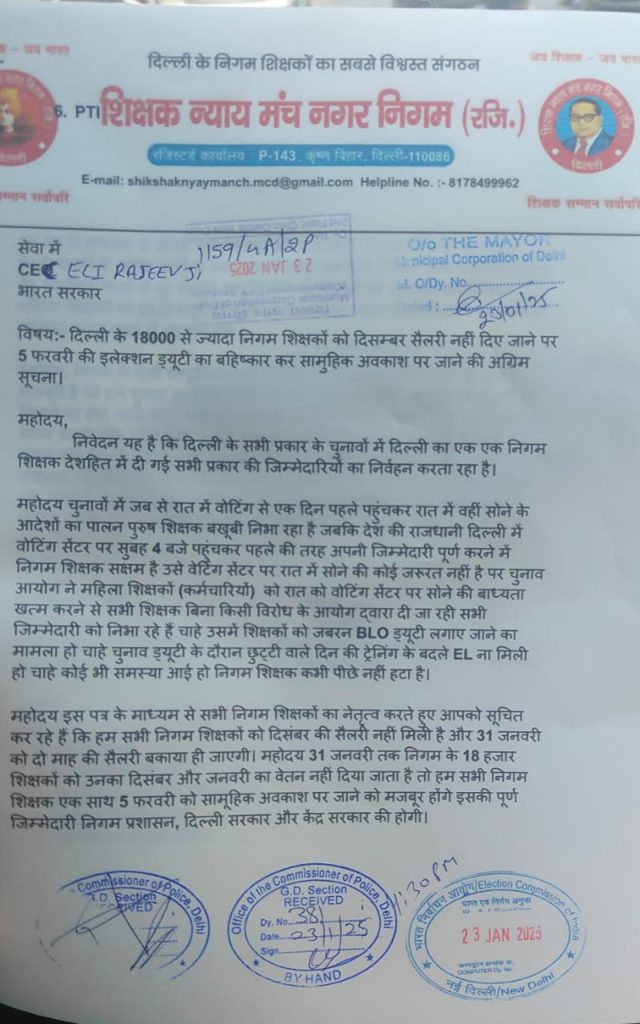 क – जय भारत
जय शिक्षक – जय भार
दिल्ली के निगम शिक्षकों का सबसे विश्वस्त संगठन
6. PTI शिक्षक न्याय मंच नगर निगम (रजि.)
रजिस्टर्ड कार्यालय P-143, कृष्ण विहार, दिल्ली-110086
E-mail: shikshaknyaymanch.mcd@gmail.com Helpline No. :- 8178499962
शिक्षक न्याय मंच नगर निगम
दिल्ली
सम्मान सर्वोपरि
शिक्षक सम्मान सर्वोपरि
सेवा में
CEC ELI RAJEEV Ji
भारत सरकार
1159/4A/2P
23 JAN 2025
O/o THE MAYOR
Municipal Corporation of Delhi
M. O/Dy. No.
25/01/25
विषय:- दिल्ली के 18000 से ज्यादा निगम शिक्षकों को दिसम्बर सैलरी नहीं दिए जाने पर
5 फरवरी की इलेक्शन ड्यूटी का बहिष्कार कर सामुहिक अवकाश पर जाने की अग्रिम
सूचना।
महोदय,
निवेदन यह है कि दिल्ली के सभी प्रकार के चुनावों में दिल्ली का एक एक निगम
शिक्षक देशहित में दी गई सभी प्रकार की जिम्मेदारियों का निर्वहन करता रहा है।
महोदय चुनावों में जब से रात में वोटिंग से एक दिन पहले पहुंचकर रात में वहीं सोने के
आदेशों का पालन पुरुष शिक्षक बखूबी निभा रहा है जबकि देश की राजधानी दिल्ली में
वोटिंग सेंटर पर सुबह 4 बजे पहुंचकर पहले की तरह अपनी जिम्मेदारी पूर्ण करने में
निगम शिक्षक सक्षम है उसे वेटिंग सेंटर पर रात में सोने की कोई जरूरत नहीं है पर चुनाव
आयोग ने महिला शिक्षकों (कर्मचारियों) को रात को वोटिंग सेंटर पर सोने की बाध्यता
खत्म करने से सभी शिक्षक बिना किसी विरोध के आयोग द्वारा दी जा रही सभी
जिम्मेदारी को निभा रहे हैं चाहे उसमें शिक्षकों को जबरन BLO ड्यूटी लगाए जाने का
मामला हो चाहे चुनाव ड्यूटी के दौरान छुट्टी वाले दिन की ट्रेनिंग के बदले EL ना मिली
हो चाहे कोई भी समस्या आई हो निगम शिक्षक कभी पीछे नहीं हटा है।
महोदय इस पत्र के माध्यम से सभी निगम शिक्षकों का नेतृत्व करते हुए आपको सूचित
कर रहे हैं कि हम सभी निगम शिक्षकों को दिसंबर की सैलरी नहीं मिली है और 31 जनवरी
को दो माह की सैलरी बकाया ही जाएगी। महोदय 31 जनवरी तक निगम के 18 हजार
शिक्षकों को उनका दिसंबर और जनवरी का वेतन नहीं दिया जाता है तो हम सभी निगम
शिक्षक एक साथ 5 फरवरी को सामूहिक अवकाश पर जाने को मजबूर होंगे इसकी पूर्ण
जिम्मेदारी निगम प्रशासन, दिल्ली सरकार और केंद्र सरकार की होगी।
Commissioner of Police, Delhi
G.D. Section
RECEIVED
Office of the Commissioner of Police, Delhi
G.D. Section
RECEIVED
Dy. No. 38
Date 23/1/25
Sign
BY HAND
1:30 PM
भारत निर्वाचन आयोग/Election Commission of India
23 JAN 2025
COMPUTER Dy. No.
नई दिल्ली/New Delhi